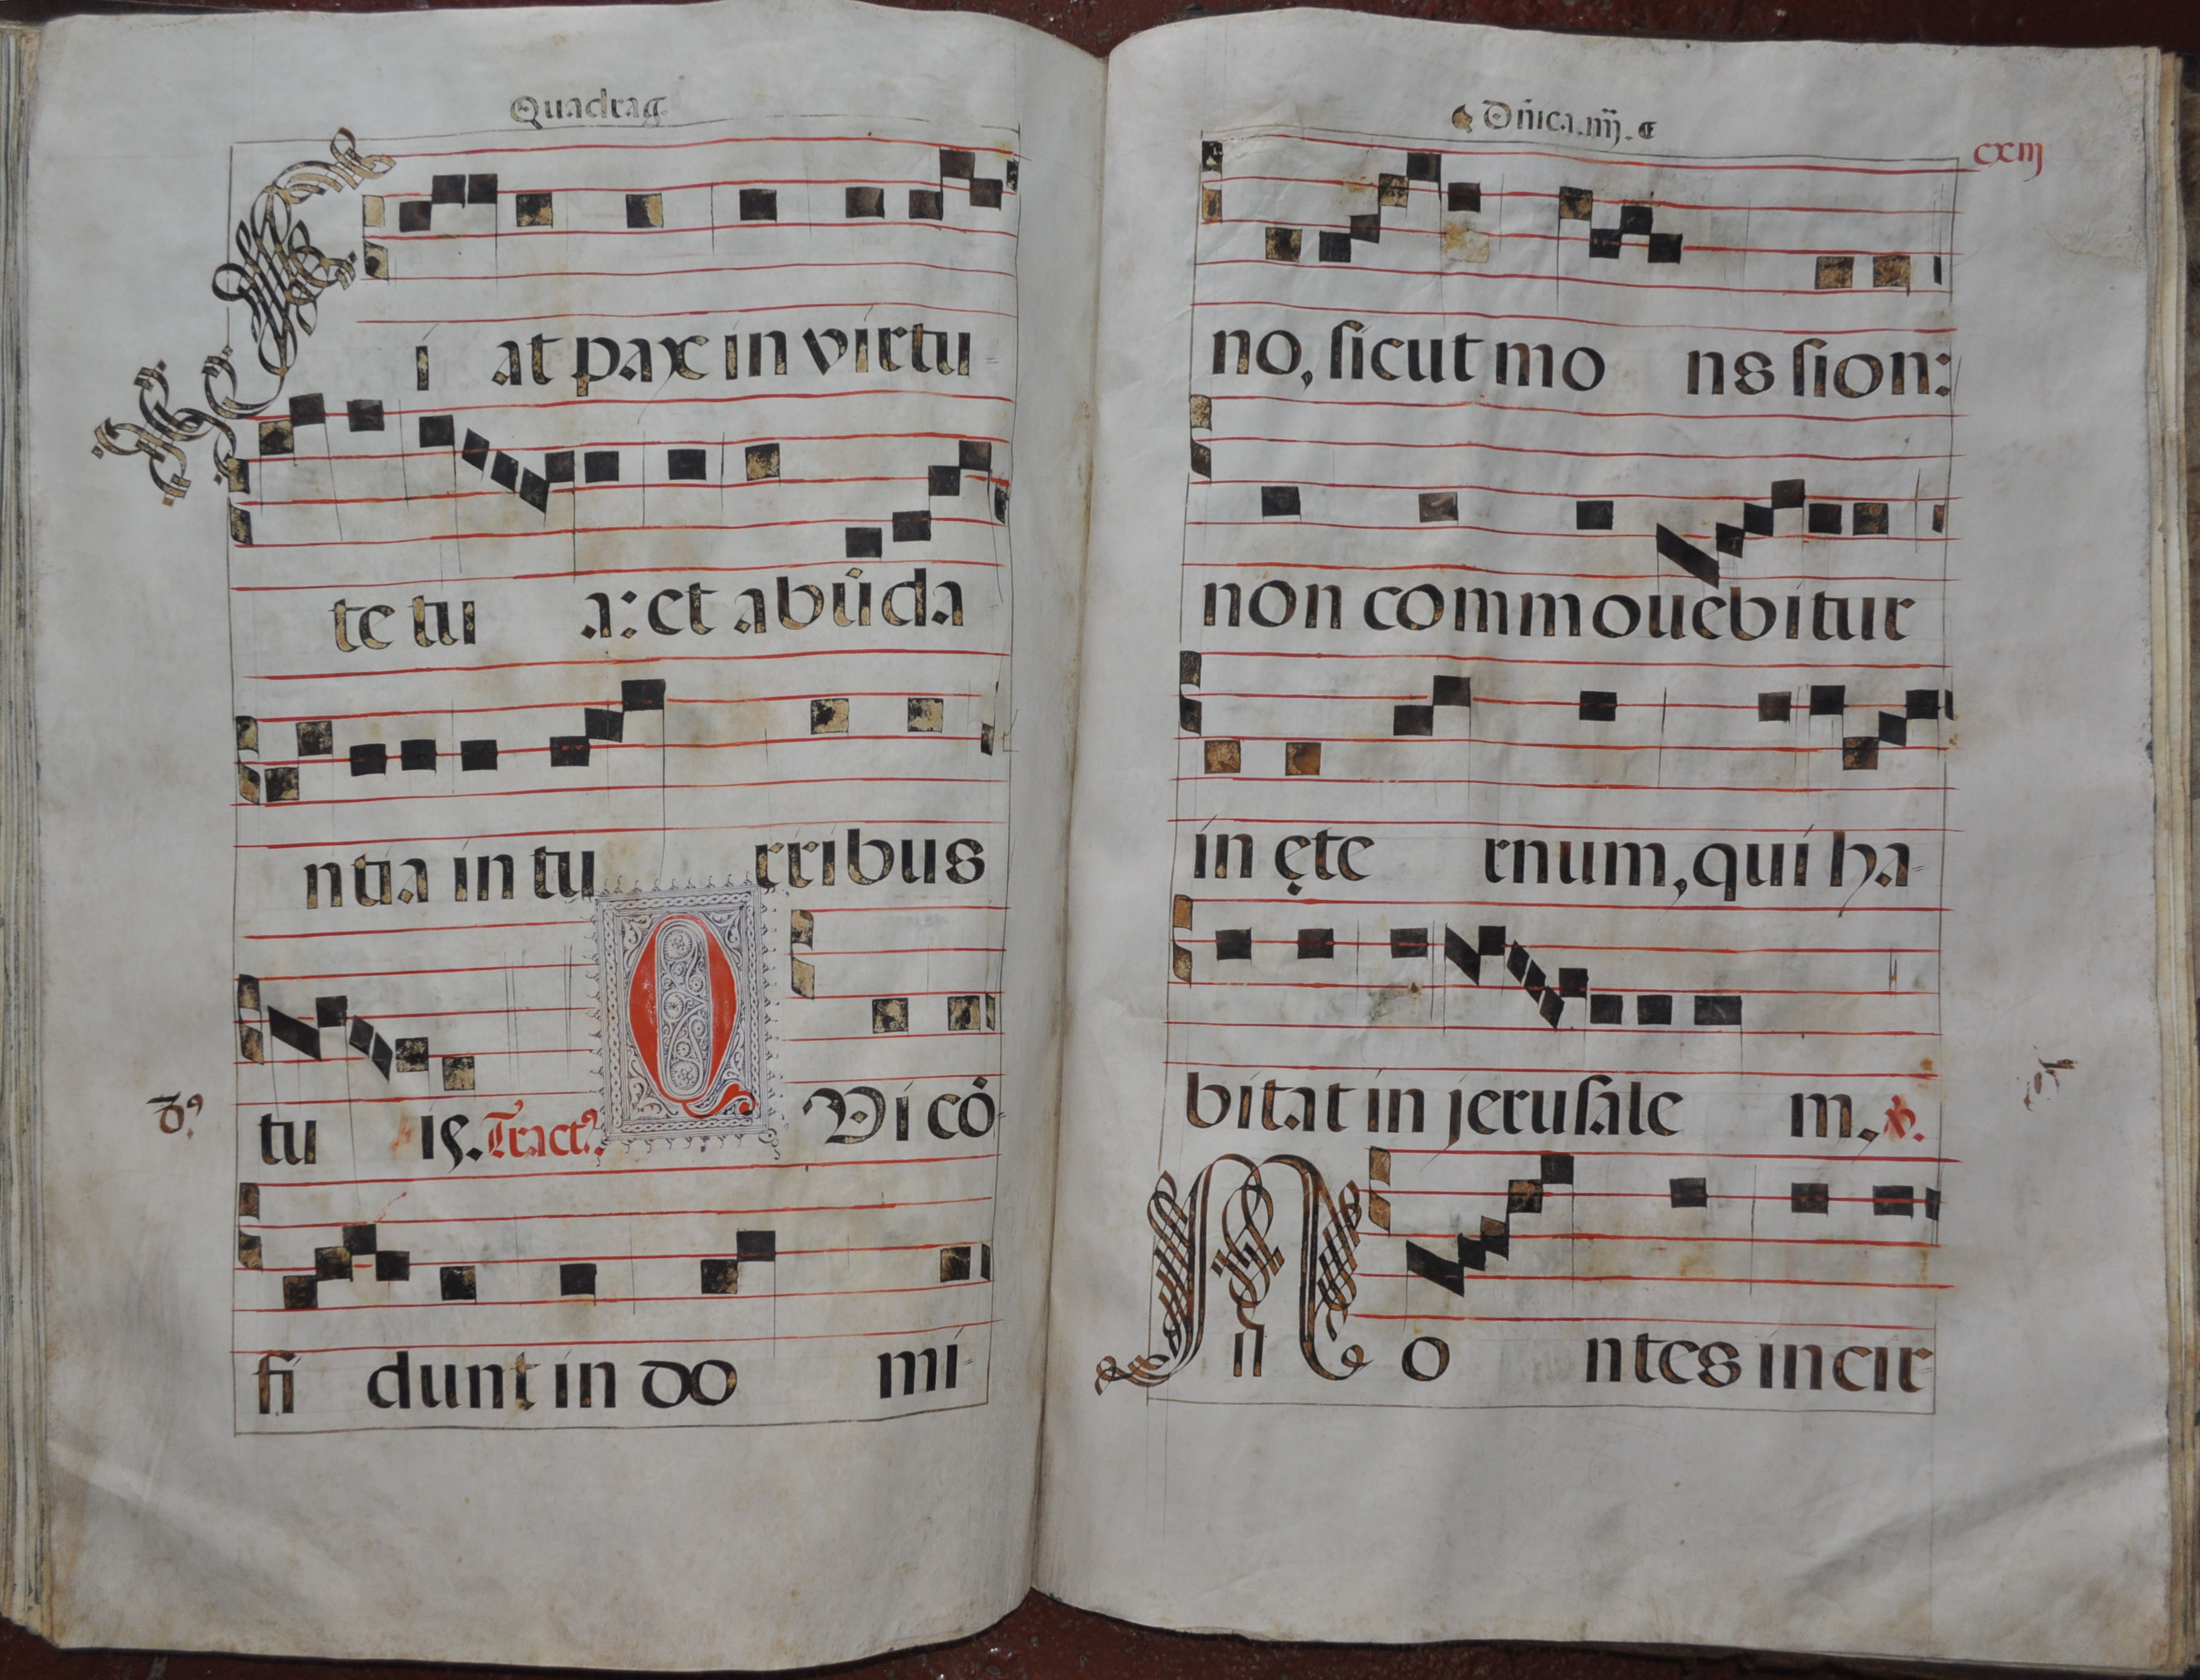 Quadrag
Fi at pax in virtu-
te tu a: et abūda
ntia in tu rribus
tu is. Tract⁹. QVi cō-
fi dunt in do mi-
Dñica.iiij.
cxiij
no, sicut mo ns sion:
non commouebitur
in ęte rnum, qui ha-
bitat in jerusale m. ℣.
Mo ntes in cir-